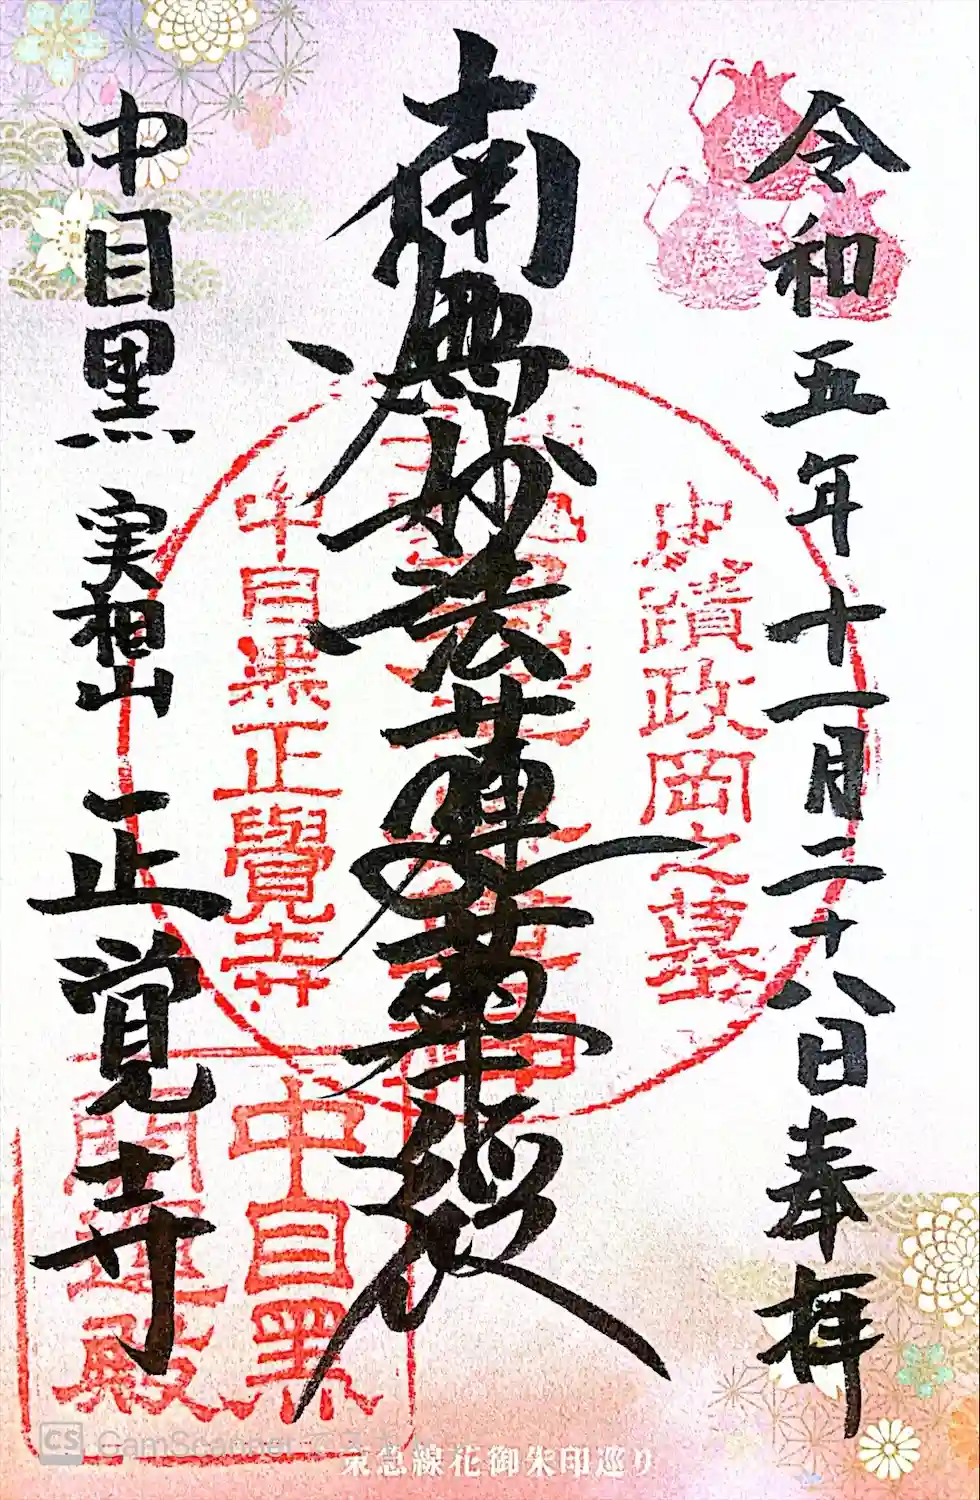 令和五年十一月二十八日奉拝
南無妙法蓮華経
中目黒 実相山 正覚寺
史蹟政岡之墓
中目黒正覺寺
中目黒
開運殿
東急線花御朱印巡り
CS CamScanner